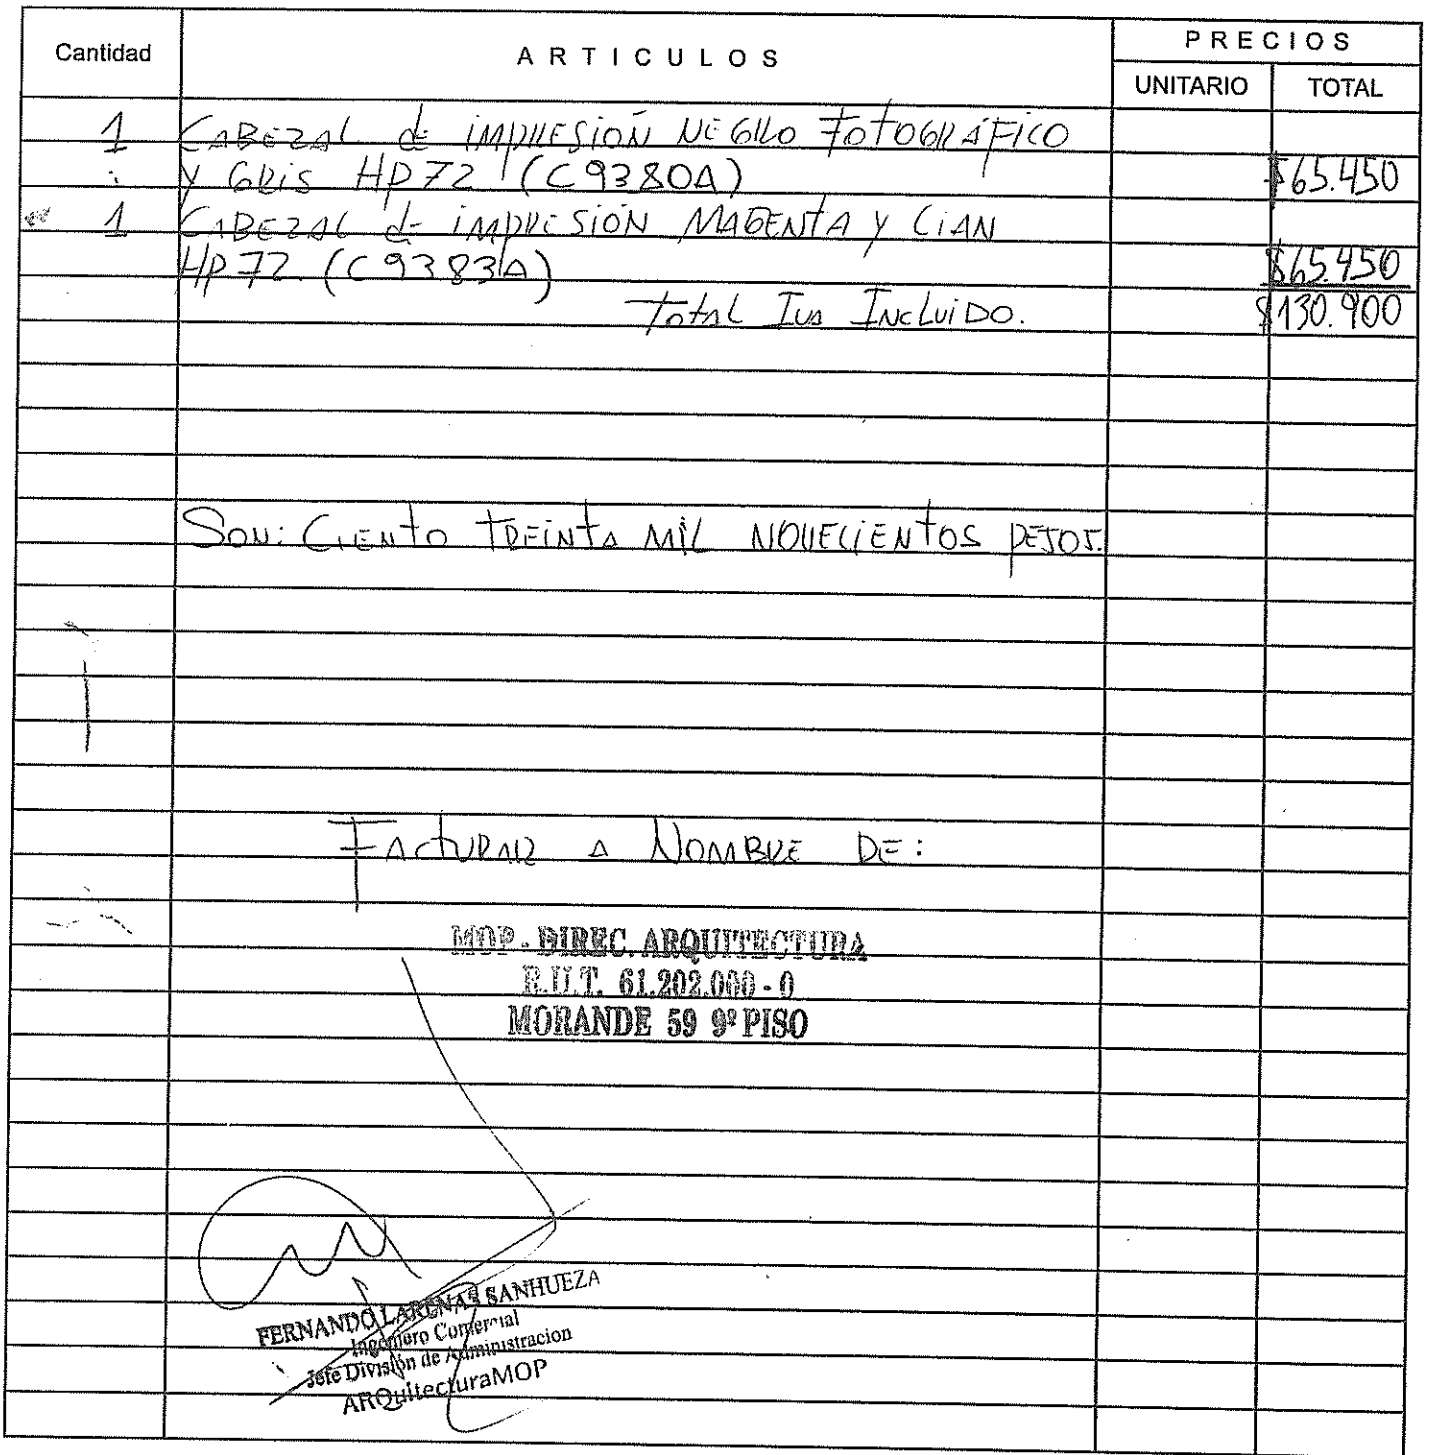 Cantidad ARTICULOS PRECIOS
UNITARIO TOTAL
1 CABEZAL de iMPRESIÓN NEGRO FOTOGRÁFICO
y GRIS HP72 (C9380A) $65.450
1 CABEZAL de iMPRESIÓN MAGENTA y CIAN
HP72 (C9383A) $65.450
Total Iva INCLUIDO. $130.900
SON: CIENTO TREINTA MIL NOVECIENTOS PESOS.
FACTURAR A NOMBRE DE:
MOP - DIREC. ARQUITECTURA
R.U.T. 61.202.000 - 0
MORANDE 59 9º PISO
FERNANDO LARENAS SANHUEZA
Ingeniero Comercial
Jefe División de Administracion
ARQuitecturaMOP